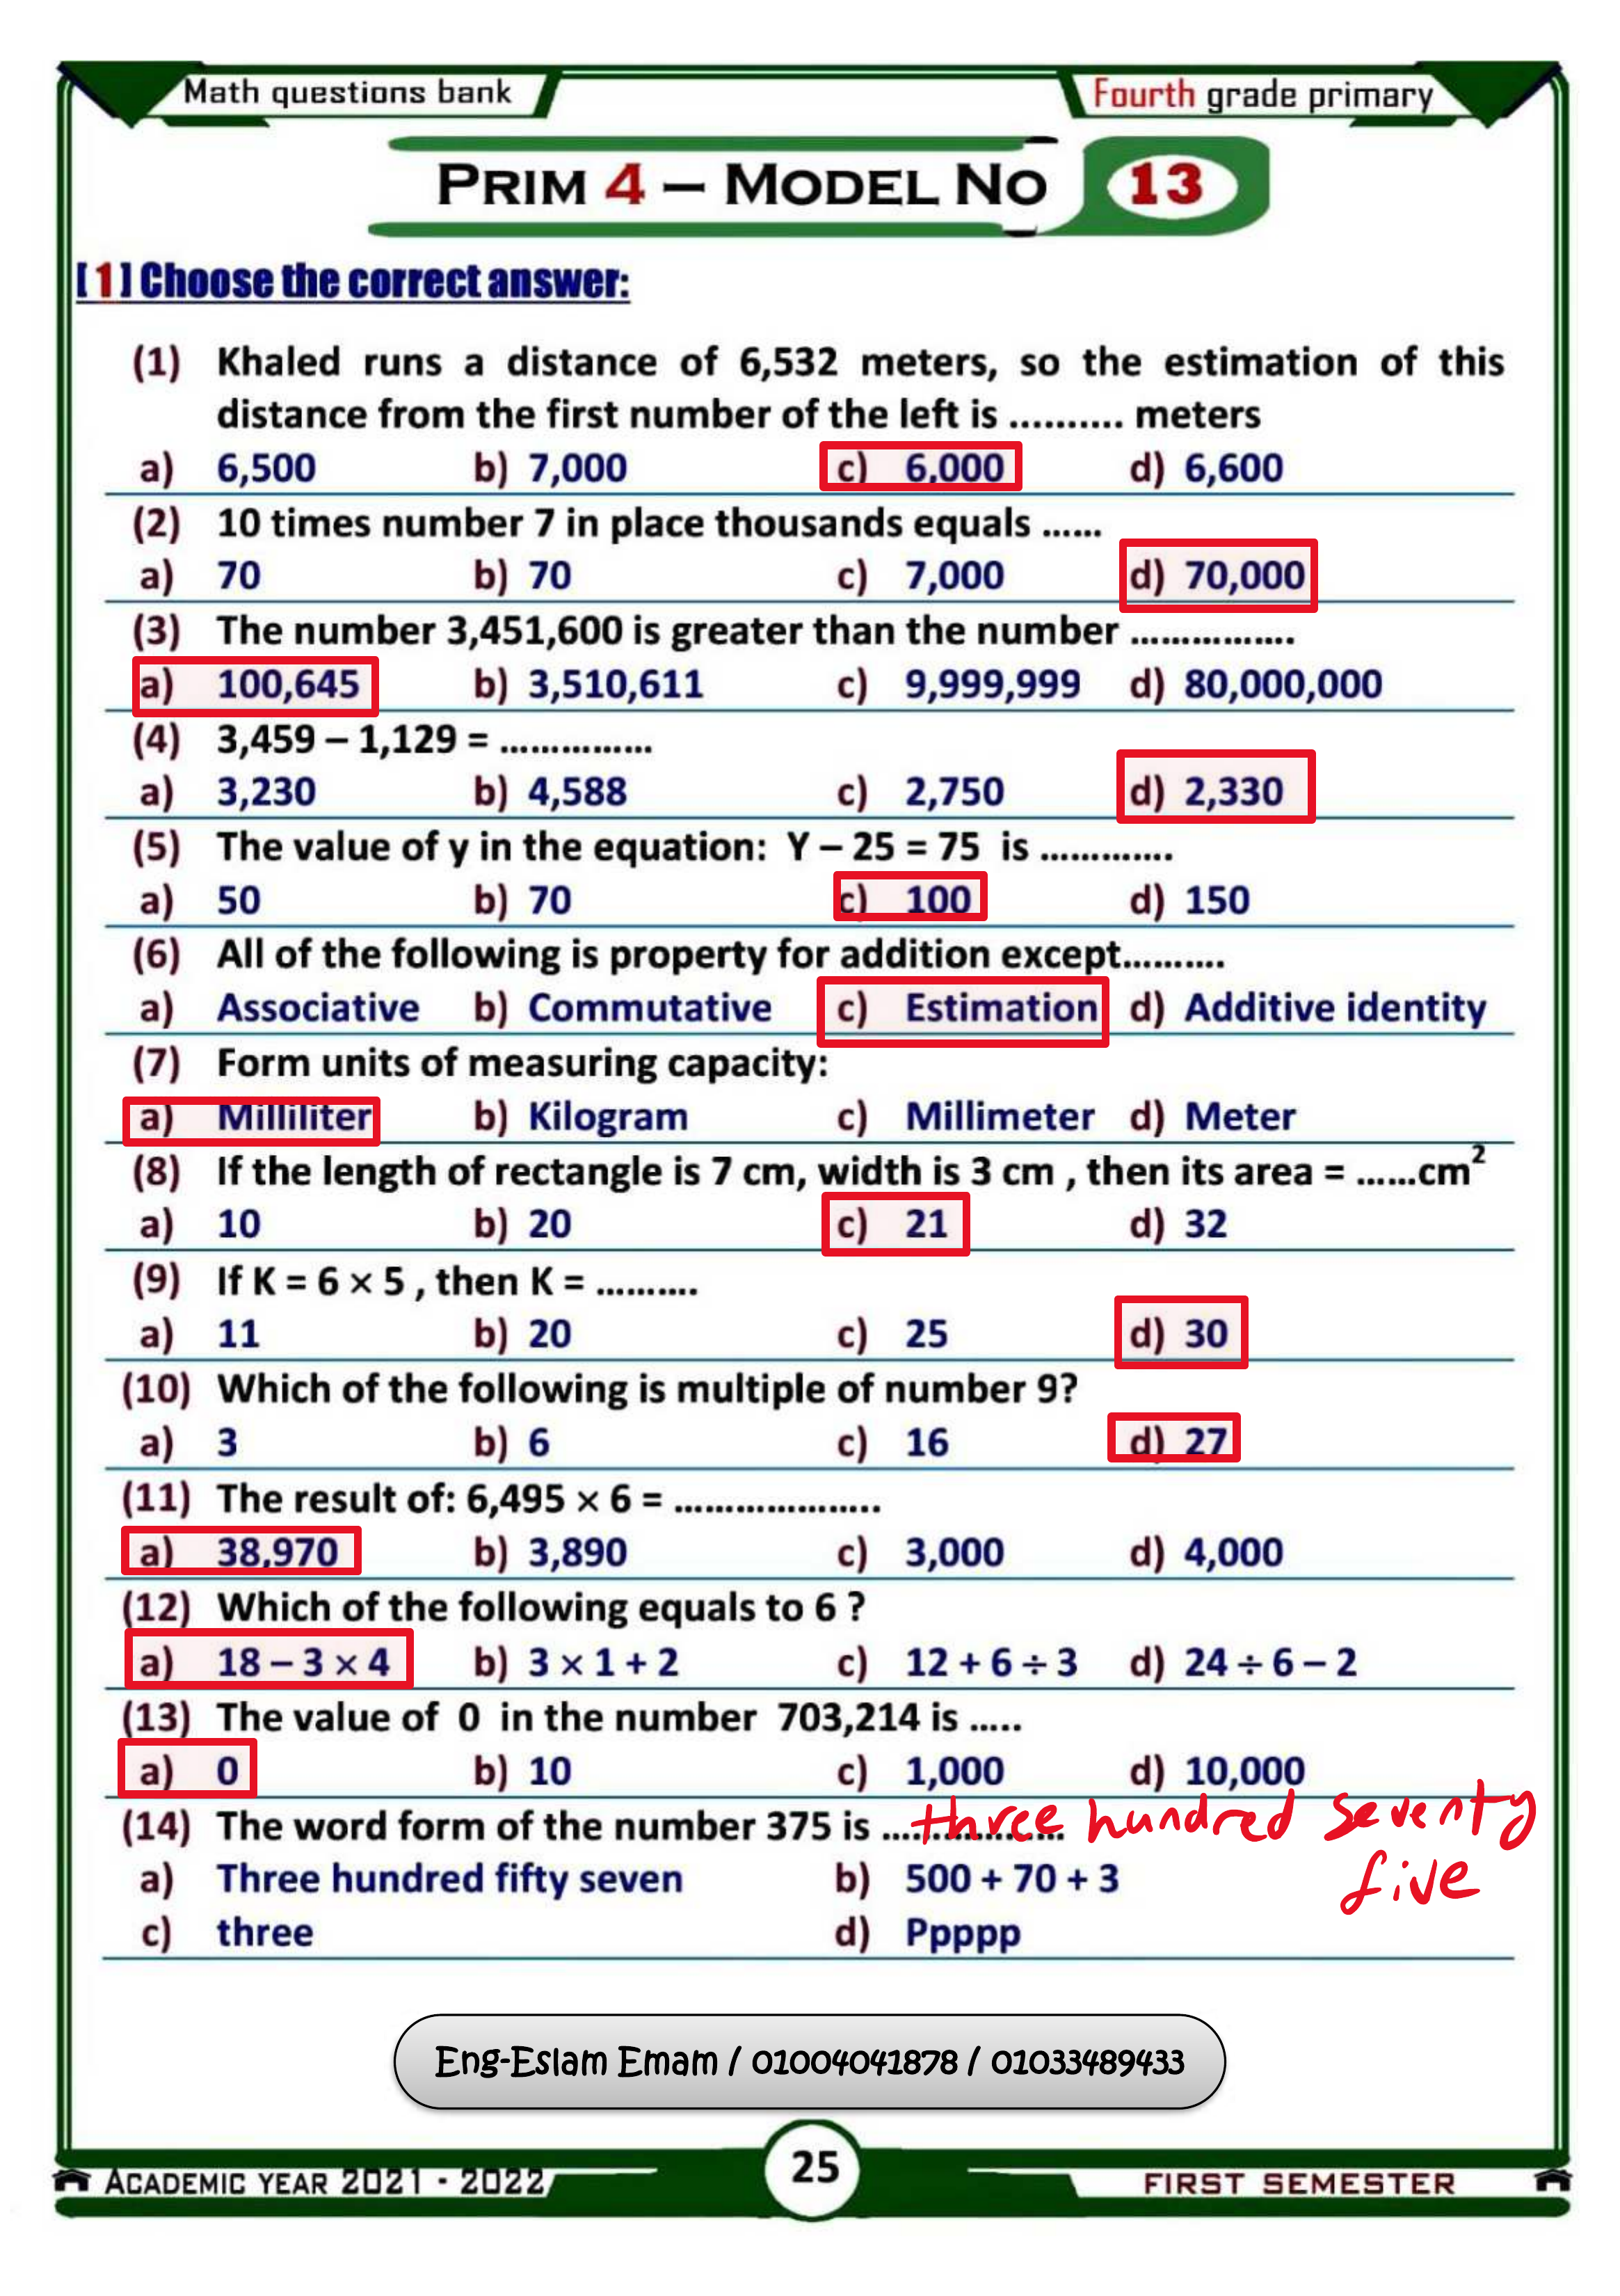 Math questions bank
Fourth grade primary
PRIM 4 – MODEL NO 13
[ 1 ] Choose the correct answer:
(1) Khaled runs a distance of 6,532 meters, so the estimation of this
distance from the first number of the left is .......... meters
a) 6,500 b) 7,000 c) 6,000 d) 6,600
(2) 10 times number 7 in place thousands equals ......
a) 70 b) 70 c) 7,000 d) 70,000
(3) The number 3,451,600 is greater than the number ................
a) 100,645 b) 3,510,611 c) 9,999,999 d) 80,000,000
(4) 3,459 – 1,129 = ...............
a) 3,230 b) 4,588 c) 2,750 d) 2,330
(5) The value of y in the equation: Y – 25 = 75 is .............
a) 50 b) 70 c) 100 d) 150
(6) All of the following is property for addition except..........
a) Associative b) Commutative c) Estimation d) Additive identity
(7) Form units of measuring capacity:
a) Milliliter b) Kilogram c) Millimeter d) Meter
(8) If the length of rectangle is 7 cm, width is 3 cm , then its area = ......cm²
a) 10 b) 20 c) 21 d) 32
(9) If K = 6 × 5 , then K = ..........
a) 11 b) 20 c) 25 d) 30
(10) Which of the following is multiple of number 9?
a) 3 b) 6 c) 16 d) 27
(11) The result of: 6,495 × 6 = ....................
a) 38,970 b) 3,890 c) 3,000 d) 4,000
(12) Which of the following equals to 6 ?
a) 18 – 3 × 4 b) 3 × 1 + 2 c) 12 + 6 ÷ 3 d) 24 ÷ 6 – 2
(13) The value of 0 in the number 703,214 is .....
a) 0 b) 10 c) 1,000 d) 10,000
(14) The word form of the number 375 is .................. three hundred seventy
five
a) Three hundred fifty seven b) 500 + 70 + 3
c) three d) Ppppp
Eng-Eslam Emam / 01004041878 / 01033489433
25
ACADEMIC YEAR 2021 - 2022
FIRST SEMESTER